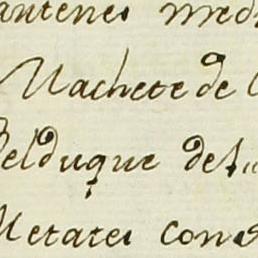 antenes med
Machete de
Belduque de
Metates con